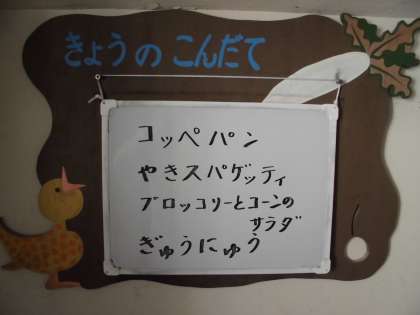 きょうのこんだて
コッペパン
やきスパゲッティ
ブロッコリーとコーンの
サラダ
ぎゅうにゅう